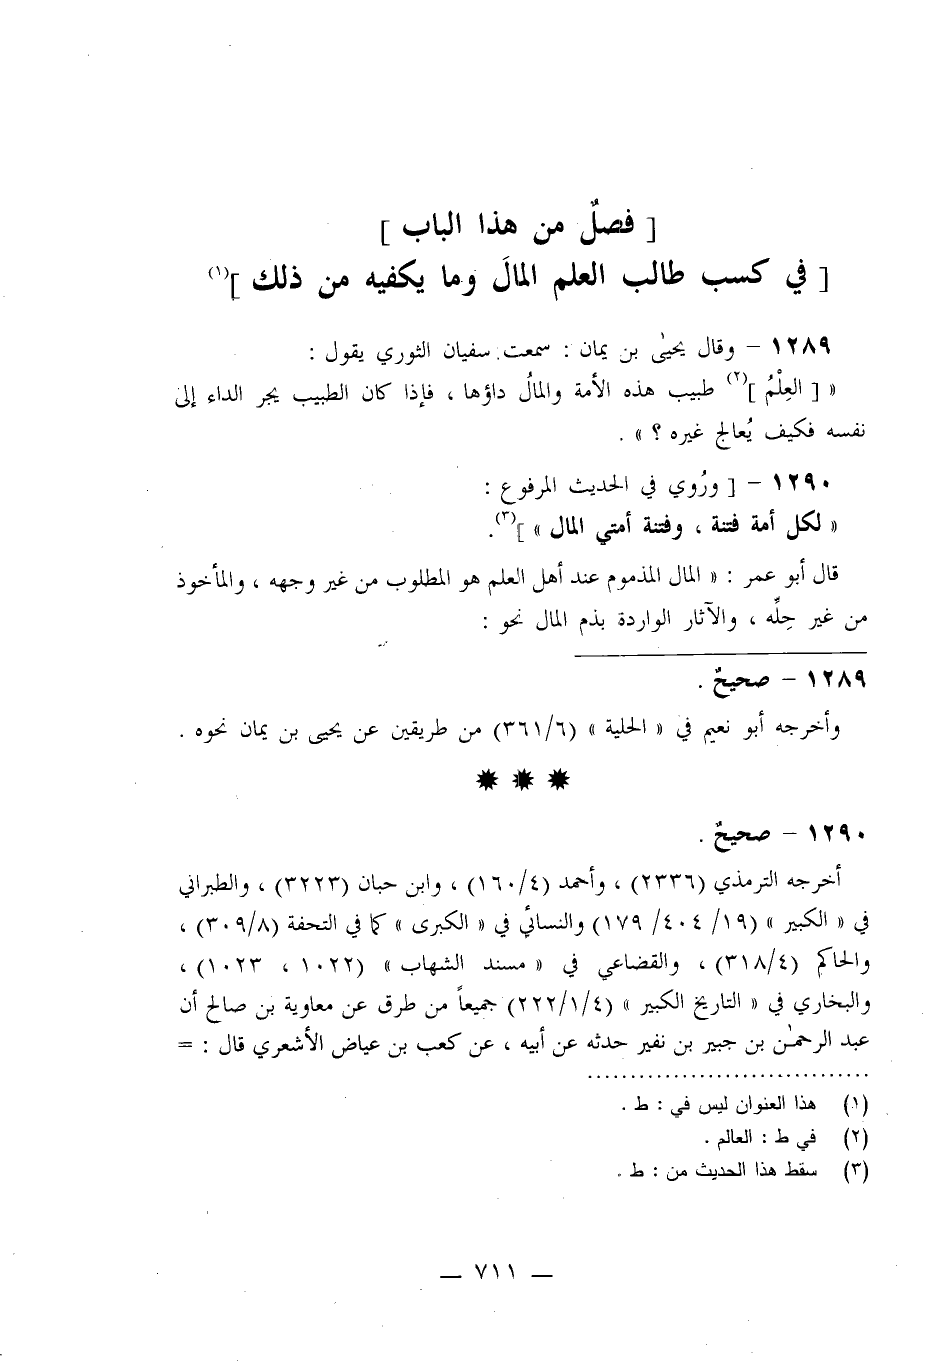 [ فصلٌ من هذا الباب ]
[ في كسب طالب العلم المالَ وما يكفيه من ذلك ](١)
١٢٨٩ – وقال يحيىٰ بن يمان : سمعت سفيان الثوري يقول :
« [ العِلْمُ ](٢) طبيب هذه الأمة والمالُ داؤها ، فإذا كان الطبيب يجر الداء إلى
نفسه فكيف يُعالج غيره ؟ » .
١٢٩٠ – [ ورُوي في الحديث المرفوع :
« لكل أمة فتنة ، وفتنة أمتي المال » ](٣).
قال أبو عمر : « المال المذموم عند أهل العلم هو المطلوب من غير وجهه ، والمأخوذ
من غير حِلِّه ، والآثار الواردة بذم المال نحو :
١٢٨٩ – صحيحٌ .
وأخرجه أبو نعيم في « الحلية » (٣٦١/٦) من طريقين عن يحيى بن يمان نحوه .
١٢٩٠ – صحيحٌ .
أخرجه الترمذي (٢٣٣٦) ، وأحمد (١٦٠/٤) ، وابن حبان (٣٢٢٣) ، والطبراني
في « الكبير » (١٩/ ٤٠٤/ ١٧٩) والنسائي في « الكبرى » كما في التحفة (٣٠٩/٨) ،
والحاكم (٣١٨/٤) ، والقضاعي في « مسند الشهاب » (١٠٢٢ ، ١٠٢٣) ،
والبخاري في « التاريخ الكبير » (٢٢٢/١/٤) جميعاً من طرق عن معاوية بن صالح أن
عبد الرحمٰن بن جبير بن نفير حدثه عن أبيه ، عن كعب بن عياض الأشعري قال : =
(١) هذا العنوان ليس في : ط .
(٢) في ط : العالم .
(٣) سقط هذا الحديث من : ط .
— ٧١١ —